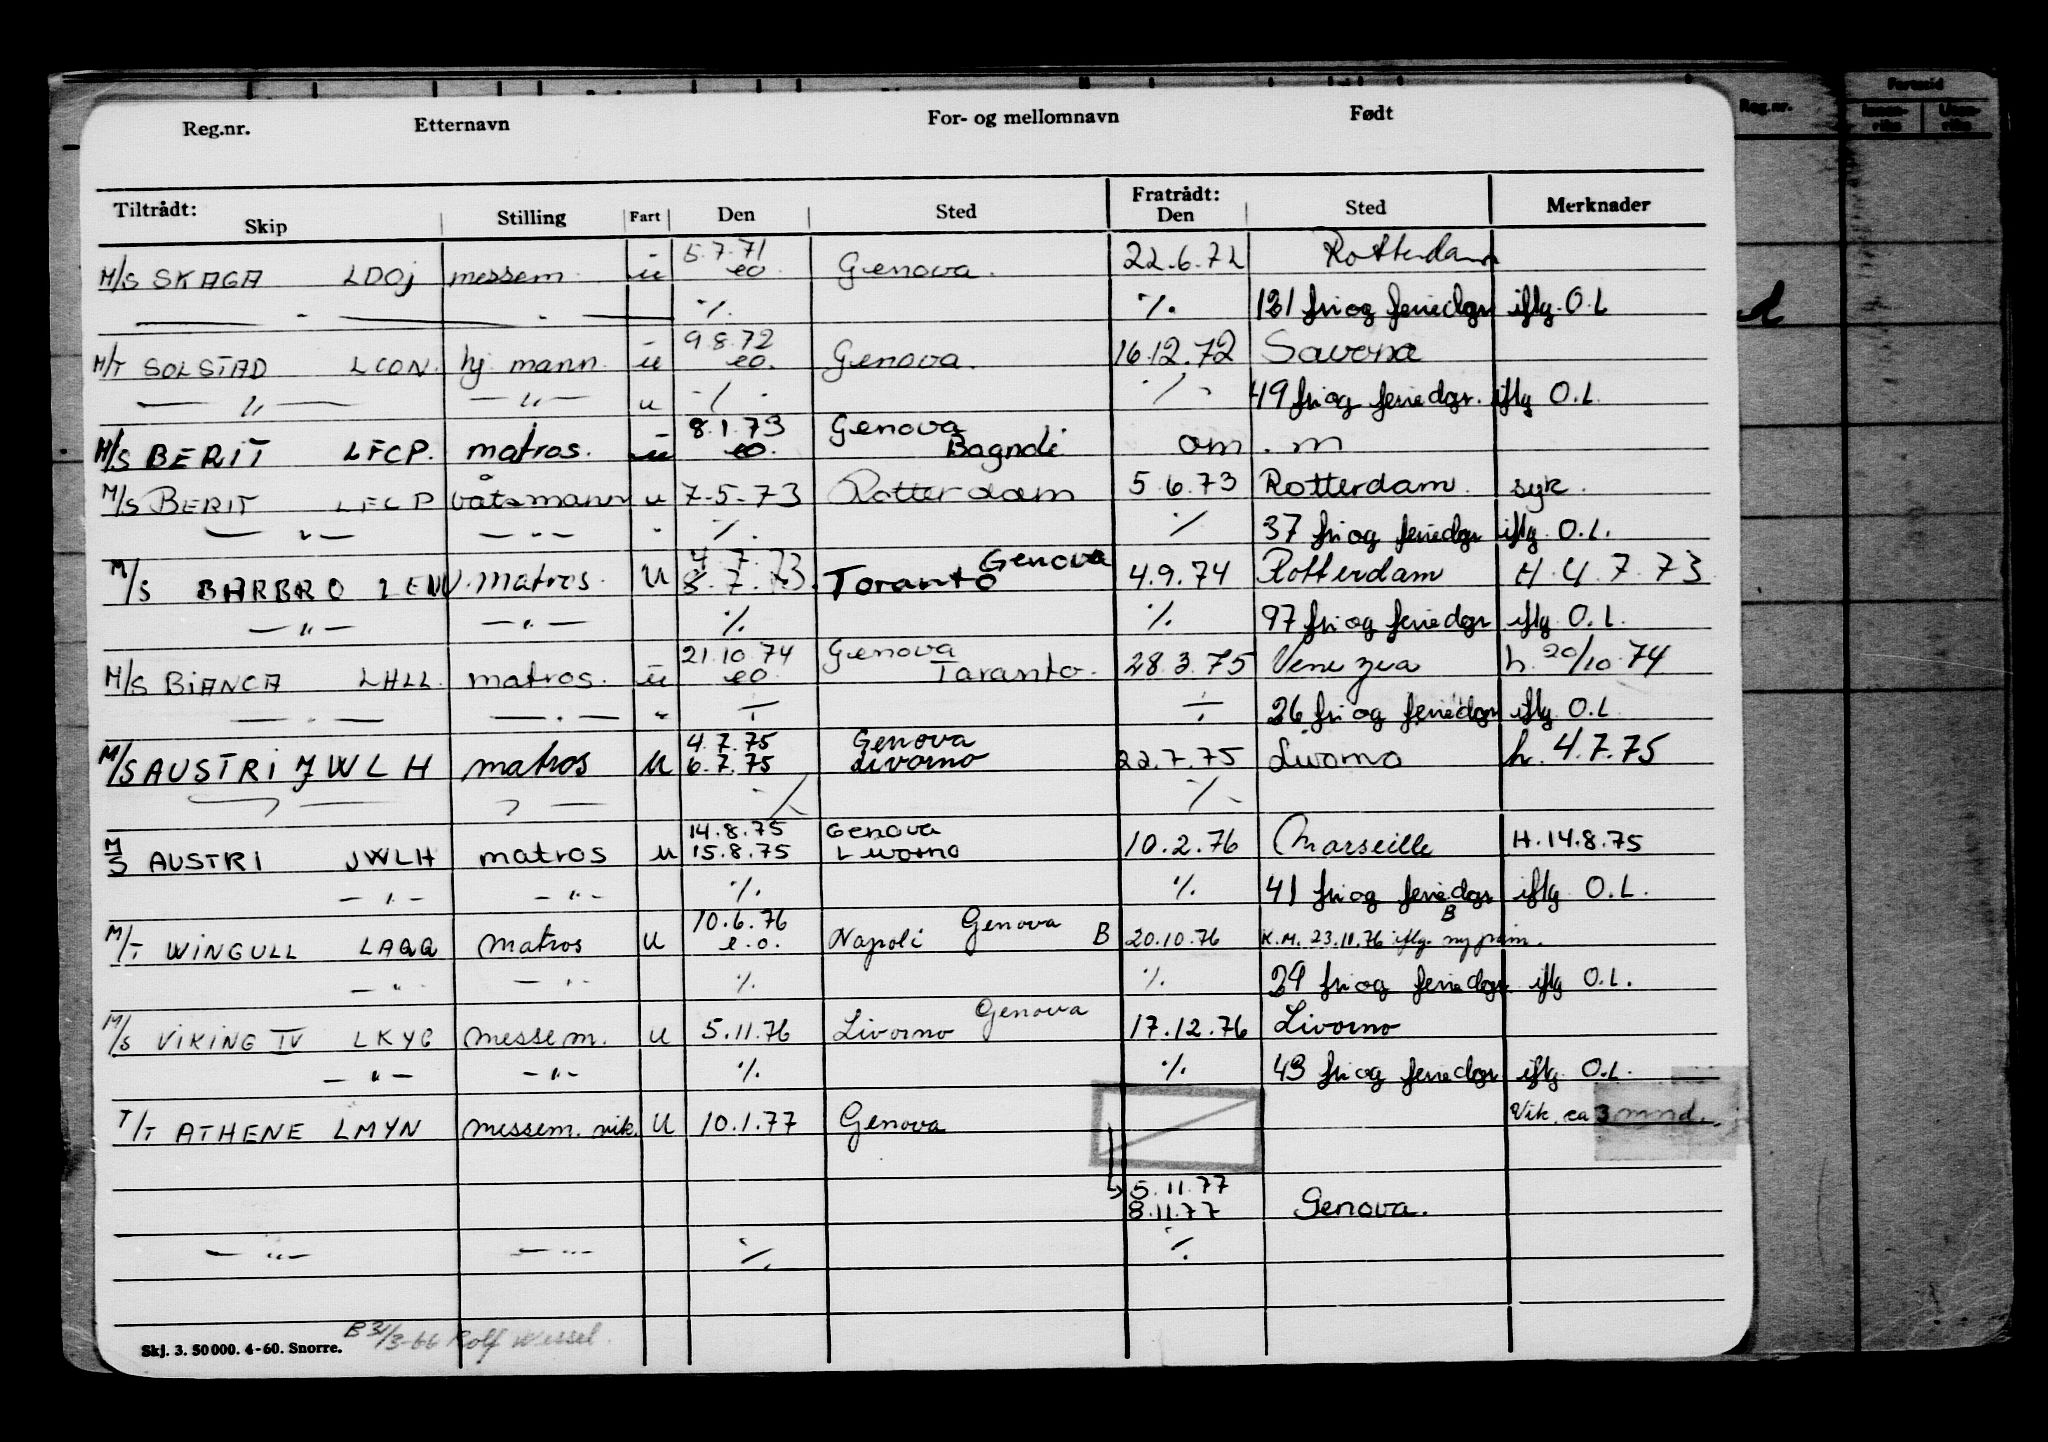 Reg.nr. Etternavn For- og mellomnavn Født
Reg.nr.
Tiltrådt: Fratrådt:
Skip Stilling Fart Den Sted Den Sted Merknader
5.7.71
M/S SKAGA LDOJ messem. u eo. Genova. 22.6.72 Rotterdam
— " — ·/. ·/. 121 fri og feriedgr iflg. O.L
9.8.72
M/T SOLSTAD LCON. hj. mann. u eo. Genova. 16.12.72 Savona
— " — — " — u -/- ·/- 49 fri og feriedgr. iflg O.L.
8.1.73 Genova
M/S BERIT LFCP. matros. u eo. Bagnoli om. m
M/S BERIT LFCP båtsmann u 7-5-73 Rotterdam 5.6.73 Rotterdam. syk.
— " — — " — " ·/. ·/. 37 fri og feriedgr iflg. O.L.
4.7.73 Genova
M/S BARBRO matros. u 8.7.73. Taranto 4.9.74 Rotterdam H. 4.7.73
— " — — " — ·/. ·/. 97 fri og feriedgr iflg. O.L.
21.10.74 Genova
M/S BIANCA LHLL. matros. u eo. Taranto. 28.3.75 Venezia h. 20/10.74
— . — — . — " ÷ ÷ 26 fri og feriedgr iflg O.L
4.7.75 Genova
M/S AUSTRI JWLH matros u 6.7.75 Livorno 22.7.75 Livorno h. 4.7.75
·/. ·/.
14.8.75 Genova
M/S AUSTRI JWLH matros u 15.8.75 Livorno 10.2.76 Marseille H.14.8.75
— " — — " — ·/. ·/. 41 fri og feriedgr iflg. O.L.
10.6.76 Genova B
M/T WINGULL LAQQ matros u e.o. Napoli B 20.10.76 K.M. 23.11.76 iflg. ny
— " — — " — ·/. ·/. 24 fri og feriedgr iflg O.L.
Genova
M/S VIKING IV LKYG messem. u 5.11.76 Livorno 17.12.76 Livorno
— " — — " — ·/. ·/. 43 fri og feriedgr iflg. O.L.
T/T ATHENE LMYN messem. vik. u 10.1.77 Genova Vik. ca 3 mnd.
5.11.77
8.11.77 Genova.
— " — — " — ·/. ·/.
Skj. 3. 50 000. 4-60. Snorre. B 31/3-66 Rolf Wessel.